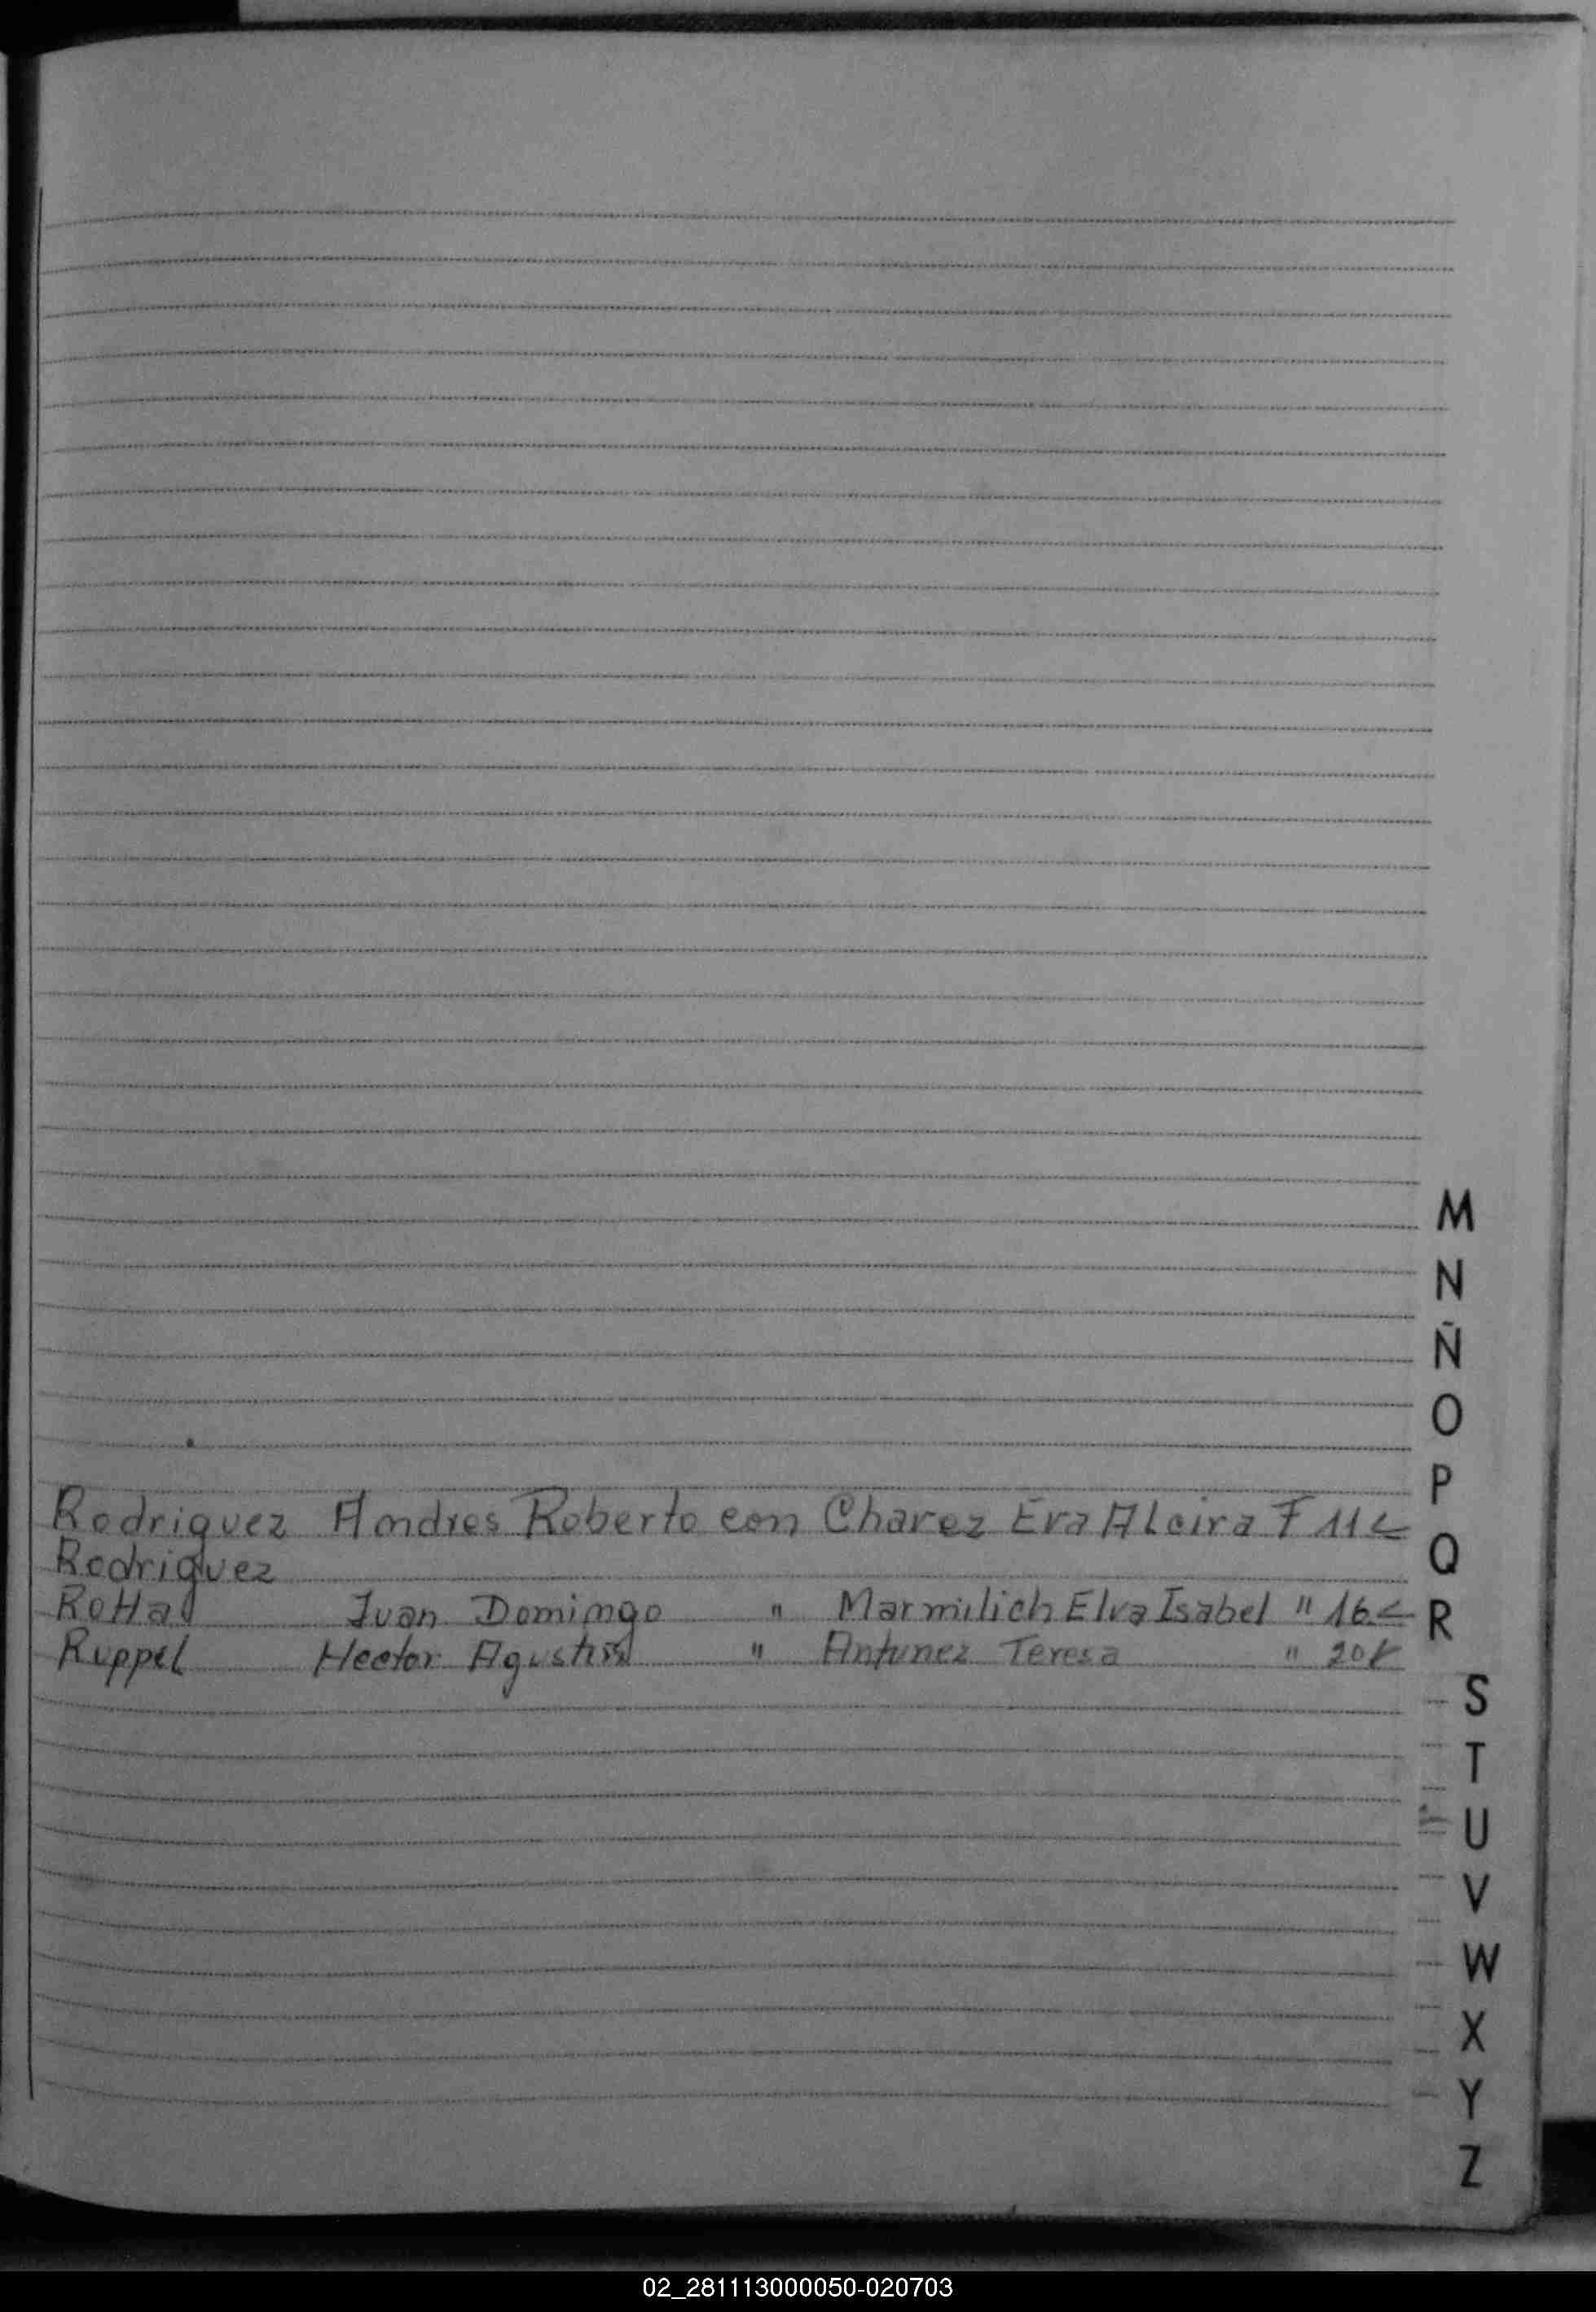 Rodriguez Andres Roberto con Chavez Eva Alcira F 11
Rodriguez
Rotta Juan Domingo " Marmilich Elva Isabel " 16
Ruppel Hector Agustin " Antunez Teresa " 20
M
N
Ñ
O
P
Q
R
S
T
U
V
W
X
Y
Z
02_281113000050-020703